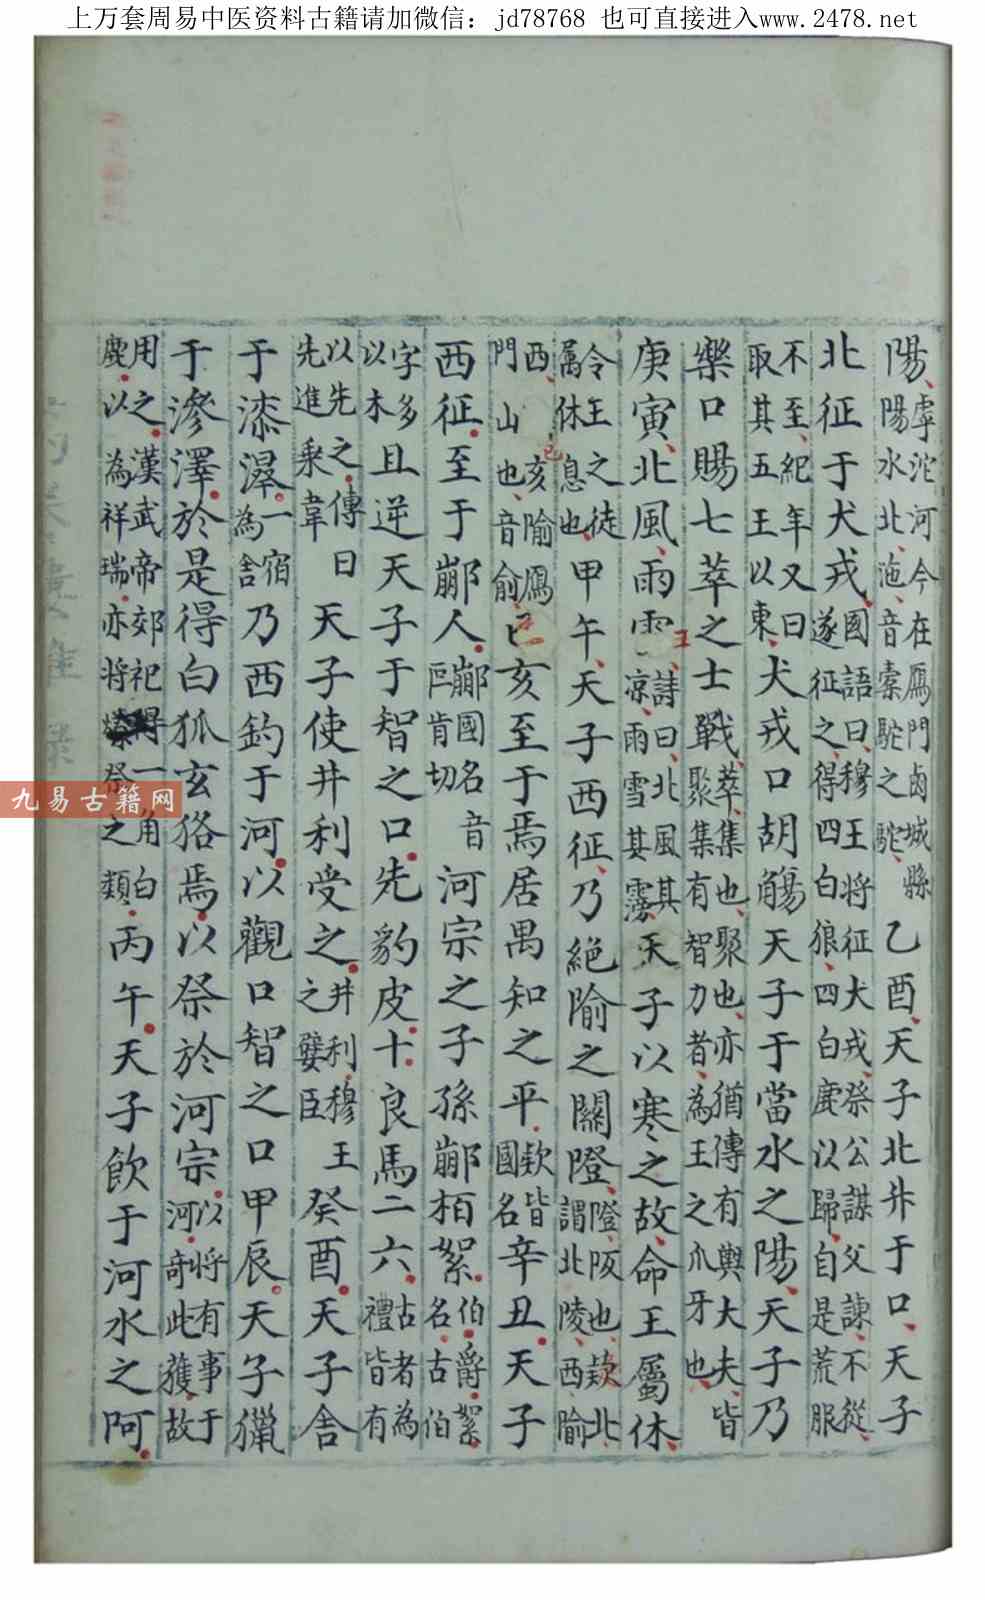 上万套周易中医资料古籍请加微信：jd78768 也可直接进入www.2478.net
陽虖沱河今在鴈門鹵城縣陽水北沲音橐駝之駝乙酉天子北升于口天子
北征于犬戎國語曰穆王將征犬戎祭公謀父諫不從遂征之得四白狼四白鹿以歸自是荒服
不至紀年又曰取其五王以東犬戎口胡觴天子于當水之陽天子乃
樂口賜七萃之士戰萃集也聚也亦猶傳有輿大夫皆聚集有智力者為王之爪牙也
庚寅北風雨雪詩曰北風其凉雨雪其霶天子以寒之故命王屬休
令王之徒属休息也甲午天子西征乃絶隃之關隥隥阪也疑北謂北陵西隃
西隃鴈門山也音俞己亥至于焉居禺知之平疑皆國名辛丑天子
西征至于䣙人䣙國名音𠥓肯切河宗之子孫䣙柏絮伯爵絮名古伯
字多以木且逆天子于智之口先豹皮十良馬二六古者為禮皆有
以先之傳曰先進乘韋天子使井利受之井利穆王之嬖臣癸酉天子舍
于漆澤一宿為舍乃西釣于河以觀口智之口甲辰天子獵
于滲澤於是得白狐玄狢焉以祭於河宗以將有事于河奇此獲故
用之漢武帝郊祀得一角白麃以為祥瑞亦將祭之類丙午天子飲于河水之阿
九易古籍网